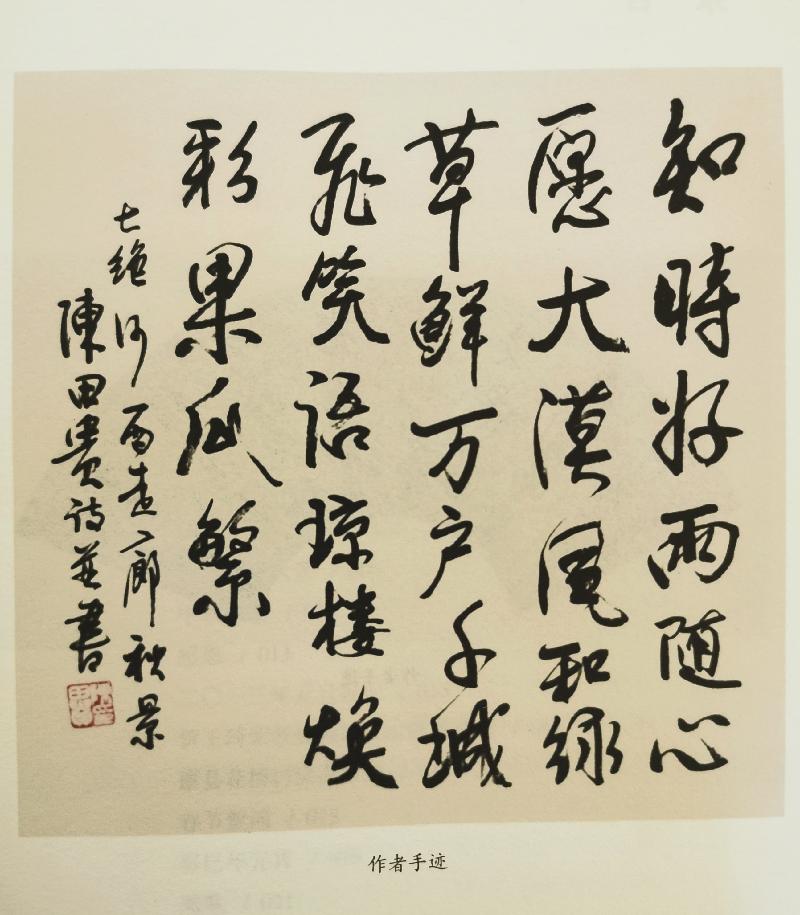 知時好雨随心
愿大漠風和绿
草鲜万户千城
飛笑语琼楼焕
彩果瓜繁
七绝河西走廊秋景
陳田貴诗並書
作者手迹